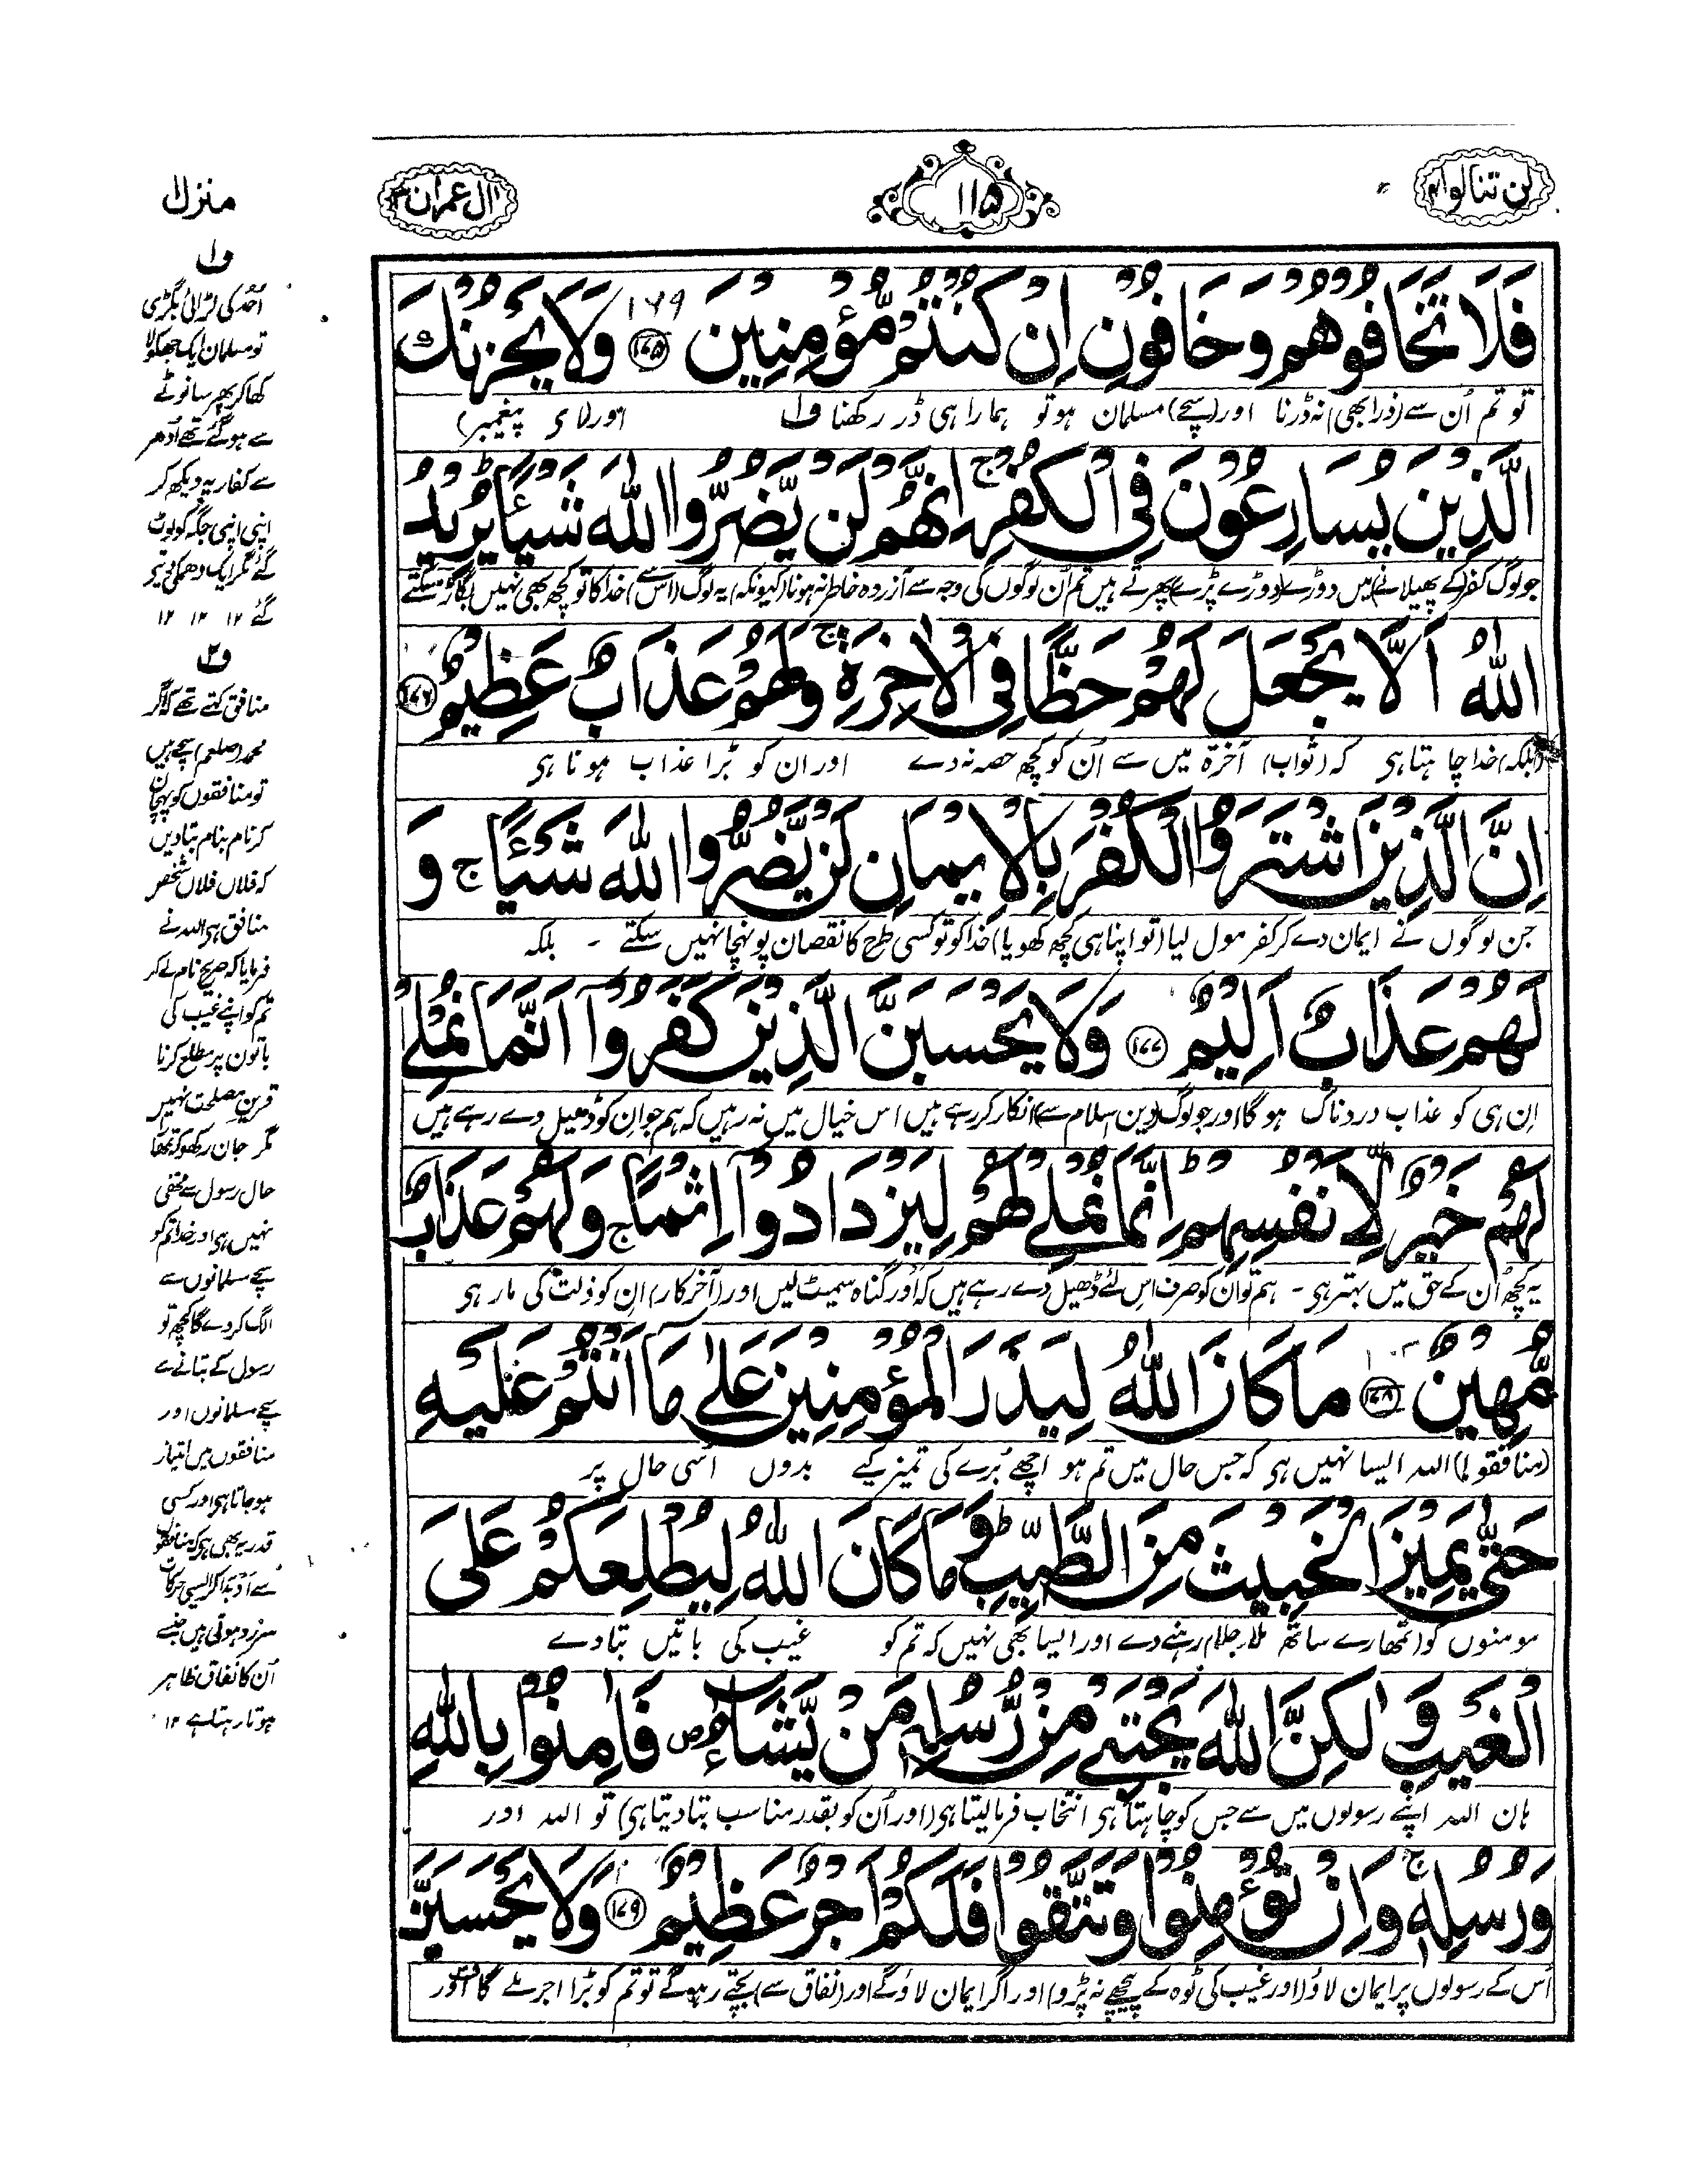 لن تنالوا۴
۱۱۵
اٰل عمران۳
منزل۱
فَلَا تَخَافُوْهُمْ وَخَافُوْنِ اِنْ كُنْتُمْ مُّؤْمِنِيْنَ ۱۷۵ وَلَا يَحْزُنْكَ
۱۶۹
تو تم اُن سے (ذرا بھی) نہ ڈرنا اور (سچے) مسلمان ہو تو ہمارا ہی ڈر رکھنا ف۱ اور (اے پیغمبر)
الَّذِيْنَ يُسَارِعُوْنَ فِى الْكُفْرِ ج اِنَّهُمْ لَنْ يَّضُرُّوا اللّٰهَ شَيْئًا ط يُرِيْدُ
جو لوگ کفر (کے پھیلانے) میں دوڑے (دوڑے پڑے) پھرتے ہیں تم اُن لوگوں کی وجہ سے آزردہ خاطر نہ ہونا (کیونکہ) یہ لوگ (اس سے) خدا کا تو کچھ بھی نہیں بگاڑ سکتے
اللّٰهُ اَلَّا يَجْعَلَ لَهُمْ حَظًّا فِى الْاٰخِرَةِ ج وَلَهُمْ عَذَابٌ عَظِيْمٌ ۱۷۶
(بلکہ) خدا چاہتا ہی کہ (ثواب) آخرۃ میں سے اُن کو کچھ حصہ نہ دے اور ان کو بڑا عذاب ہونا ہی
اِنَّ الَّذِيْنَ اشْتَرَوُا الْكُفْرَ بِالْاِيْمَانِ لَنْ يَّضُرُّوا اللّٰهَ شَيْئًا ج وَ
جن لوگوں نے ایمان دے کر کفر مول لیا (تو اپنا ہی کچھ کھویا) خدا کو تو کسی طرح کا نقصان پونہچا نہیں سکتے - بلکہ
لَهُمْ عَذَابٌ اَلِيْمٌ ۱۷۷ وَلَا يَحْسَبَنَّ الَّذِيْنَ كَفَرُوْٓا اَنَّمَا نُمْلِىْ
اِن ہی کو عذاب دردناک ہوگا اور جو لوگ (دین اسلام سے) انکار کر رہے ہیں اس خیال میں نہ رہیں کہ ہم جو ان کو ڈھیل دے رہے ہیں
لَهُمْ خَيْرٌ لِّاَنْفُسِهِمْ ط اِنَّمَا نُمْلِىْ لَهُمْ لِيَزْدَادُوْٓا اِثْمًا ج وَلَهُمْ عَذَابٌ
یہ کچھ اُن کے حق میں بہتر ہی - ہم تو ان کو صرف اس لئے ڈھیل دے رہے ہیں کہ اَور گناہ سمیٹ لیں اور (آخرکار) ان کو ذلت کی مار ہی
مُّهِيْنٌ ۱۷۸ مَا كَانَ اللّٰهُ لِيَذَرَ الْمُؤْمِنِيْنَ عَلٰى مَآ اَنْتُمْ عَلَيْهِ
(منافقو!) اللہ ایسا نہیں ہی کہ جس حال میں تم ہو اچھے بُرے کی تمیز کیے بدوں اُسی حال پر
حَتّٰى يَمِيْزَ الْخَبِيْثَ مِنَ الطَّيِّبِ ط وَمَا كَانَ اللّٰهُ لِيُطْلِعَكُمْ عَلَى
مومنوں کو (تمھارے ساتھ ملا جلا) رہنے دے اور ایسا بھی نہیں کہ تم کو غیب کی باتیں بتادے
الْغَيْبِ وَلٰكِنَّ اللّٰهَ يَجْتَبِىْ مِنْ رُّسُلِهٖ مَنْ يَّشَآءُ ص فَاٰمِنُوْا بِاللّٰهِ
ہاں اللہ اپنے رسولوں میں سے جس کو چاہتا ہی انتخاب فرمالیتا ہی (اور اُن کو بقدر مناسب بتا دیتا ہی) تو اللہ اور
وَرُسُلِهٖ ج وَاِنْ تُؤْمِنُوْا وَتَتَّقُوْا فَلَكُمْ اَجْرٌ عَظِيْمٌ ۱۷۹ وَلَا يَحْسَبَنَّ
اُس کے رسولوں پر ایمان لاؤ (اور غیب کی ٹوہ کے پیچھے نہ پڑو) اور اگر ایمان لاؤ گے اور (نفاق سے) بچتے رہوگے تو تم کو بڑا اجر ملے گا ف۲ اور
ف۱
اُحد کی لڑائی بگڑی
تو مسلمان ایک جھکولا
کھا کر پھر سانوٹے
سے ہوگئے تھے اُدھر
سے کفار یہ دیکھ کر
اپنی اپنی جگہ کو لوٹ
گئے مگر ایک دھمکی دیتے
گئے ۱۲ ۱۲ ۱۲
ف۲
منافق کہتے تھے کہ اگر
محمد (صلعم) سچے ہیں
تو منافقوں کو پہچان
کر نام بنام بتادیں
کہ فلاں فلاں شخص
منافق ہی اللہ نے
فرمایا کہ صریح نام لے کر
تم کو اپنے غیب کی
باتوں پر مطلع کرنا
قرین مصلحت نہیں
مگر جان رکھو کہ تمھارا
حال رسول سے مخفی
نہیں ہی اور خدا تم کو
سچے مسلمانوں سے
الگ کردے گا کچھ تو
رسول کے بتانے سے
سچے مسلمانوں اور
منافقوں میں امتیاز
ہو جاتا ہی اور کسی
قدر یہ بھی ہی کہ منافقوں
سے اَدبدا کر ایسی حرکات
سرزد ہوتی ہیں جنسے
اُن کا نفاق ظاہر
ہوتا رہتا ہے ۱۲